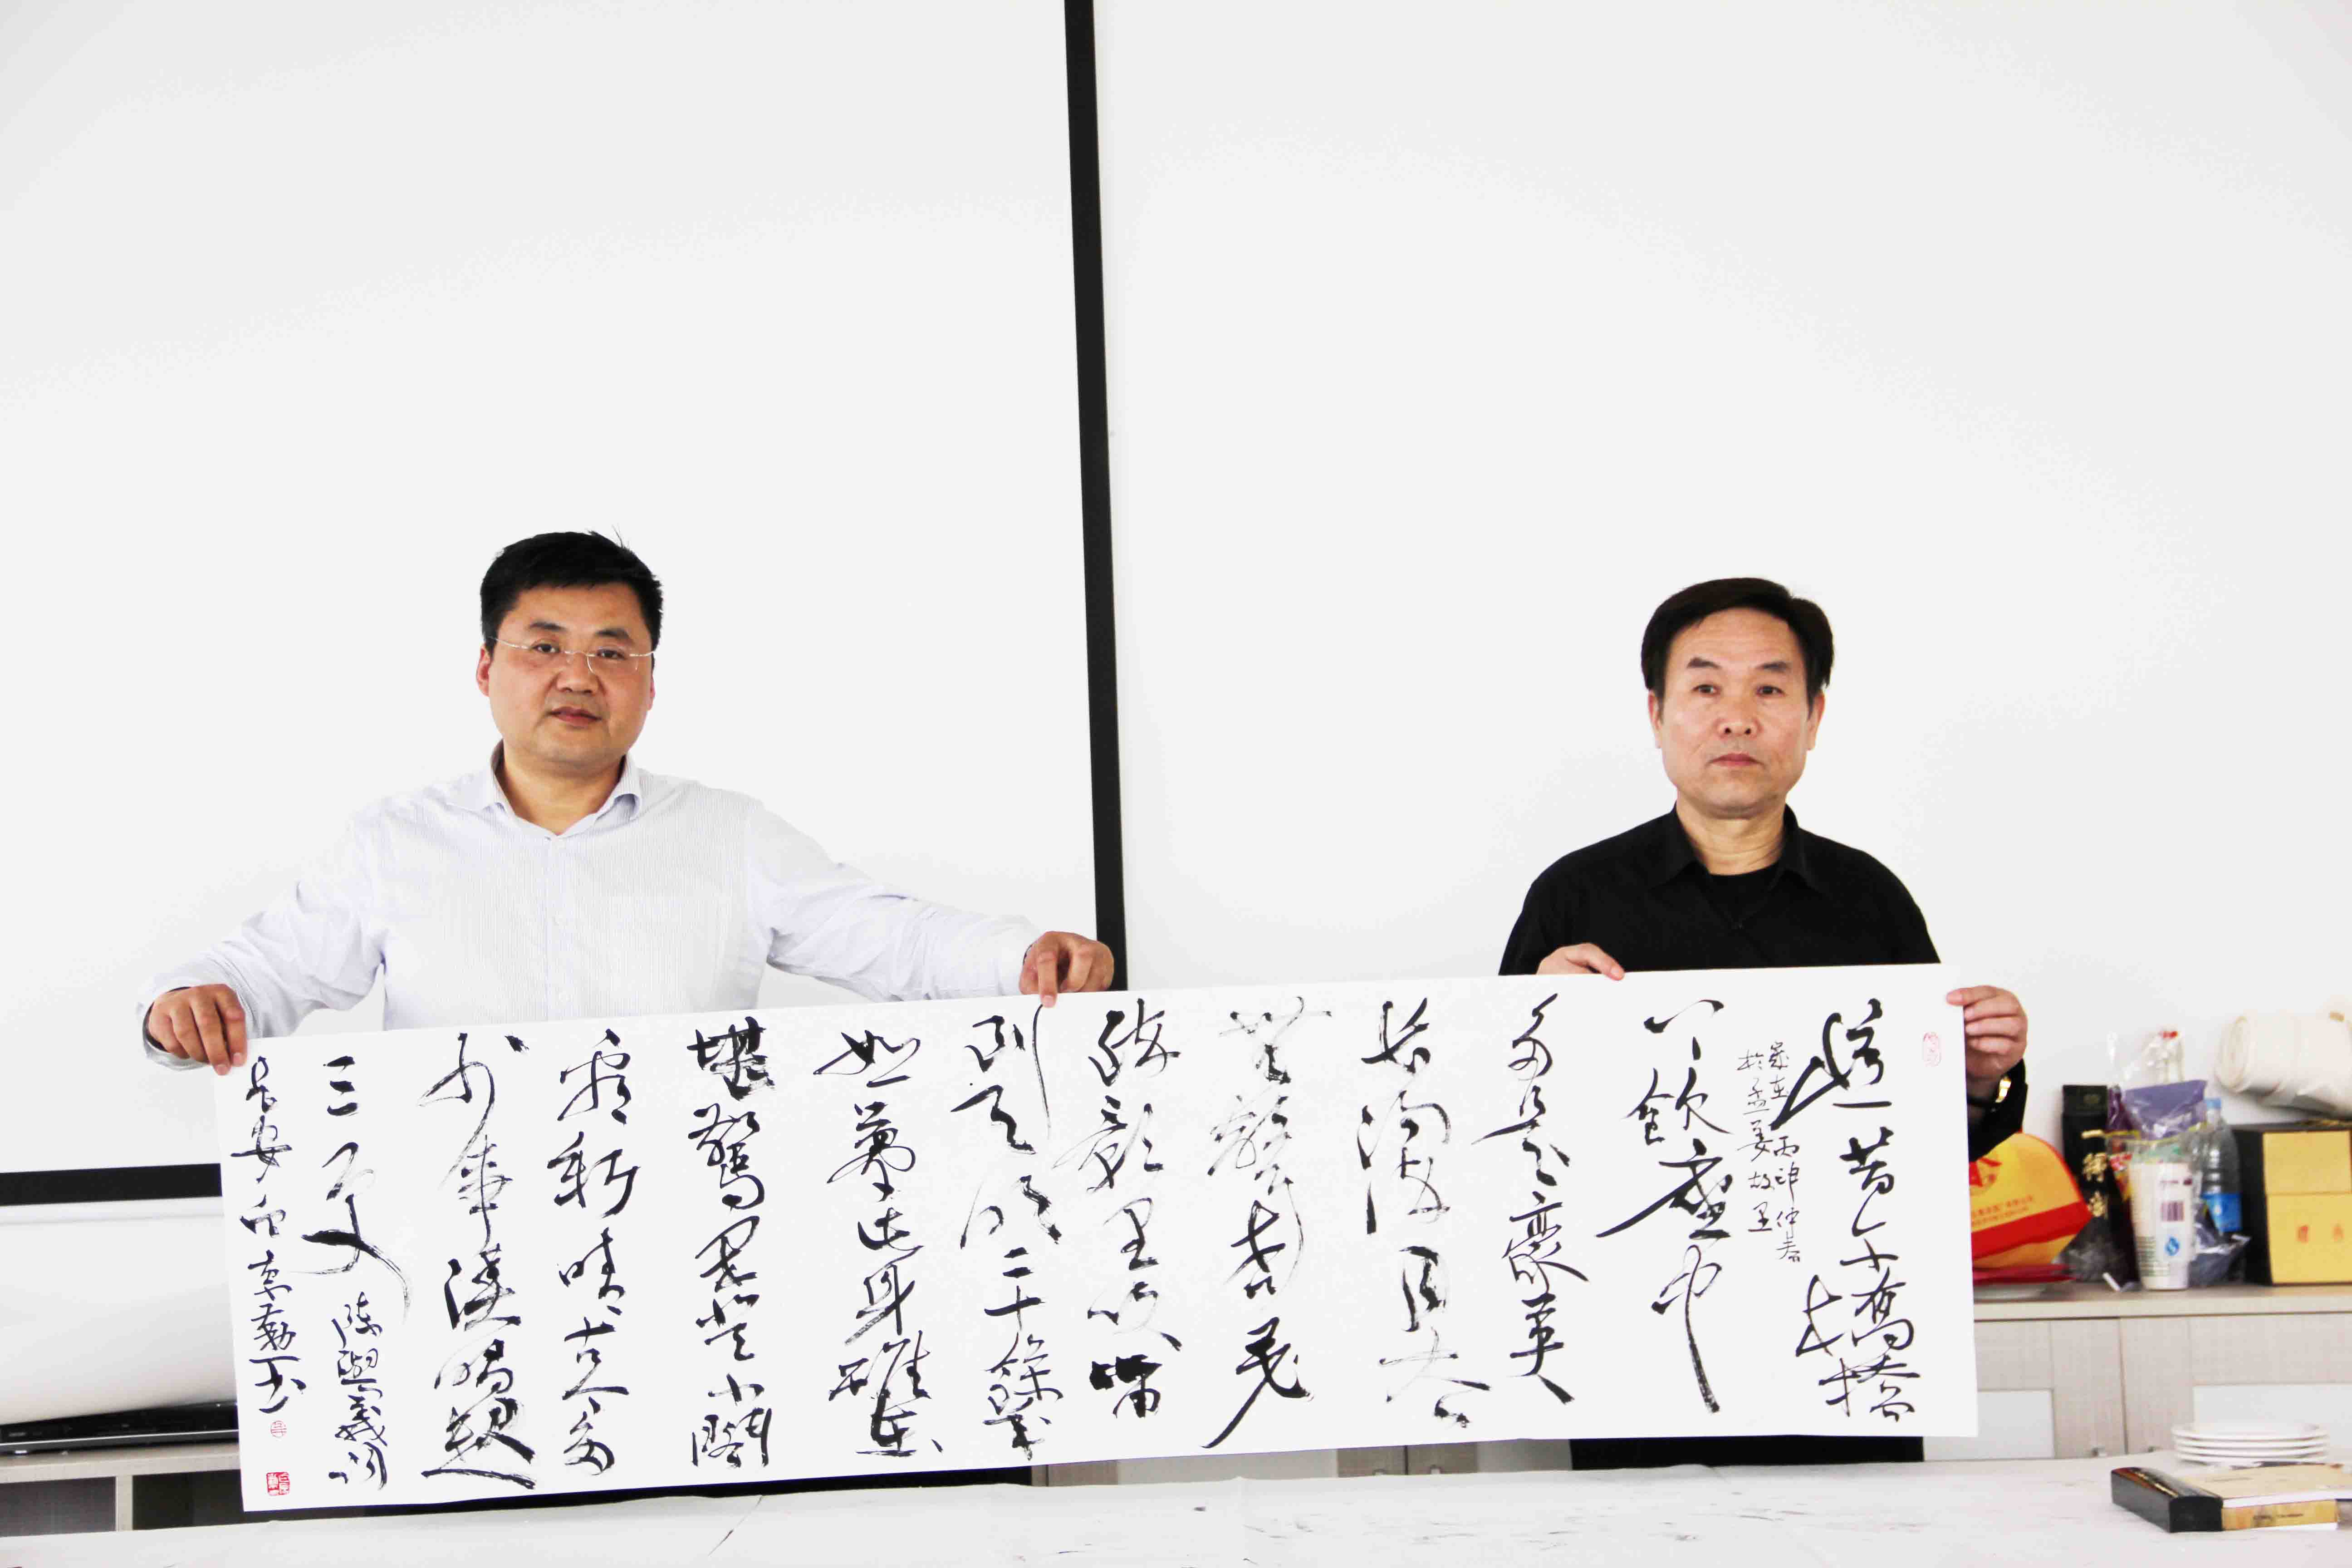 憶昔午橋橋
歲在丙申仲春
於孟姜故里
上飲座中
多是豪英
長溝流月去
無聲杏花
疏影里吹笛
到天明二十餘年
如一夢此身雖在
堪驚閑登小閣
看新晴古今多
少事漁唱起
三更 陳與義詞
長安